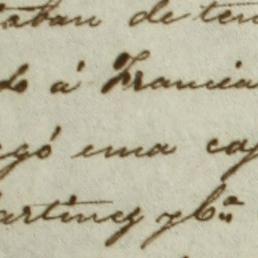 taban de ten
do á Francia
egó una caj
artinez y C.ª